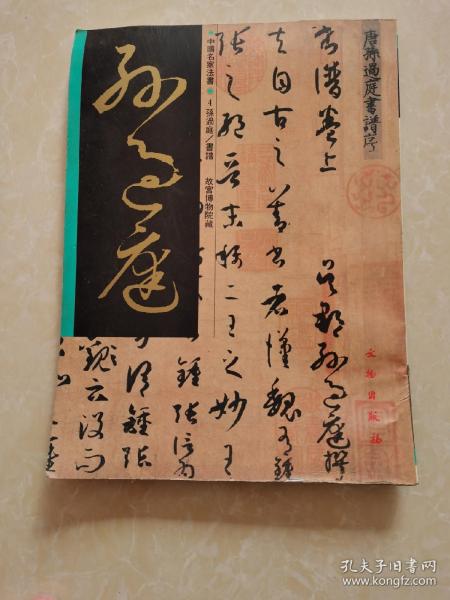 孫過庭
中國名家法書
4 孫過庭／書譜
故宮博物院藏
唐孫過庭書譜序
書譜卷上 吳郡孫過庭撰
夫自古之善書者漢魏有鍾
張之絕晉末稱二王之妙王
文物出版社
孔夫子旧书网
www.kongfz.com